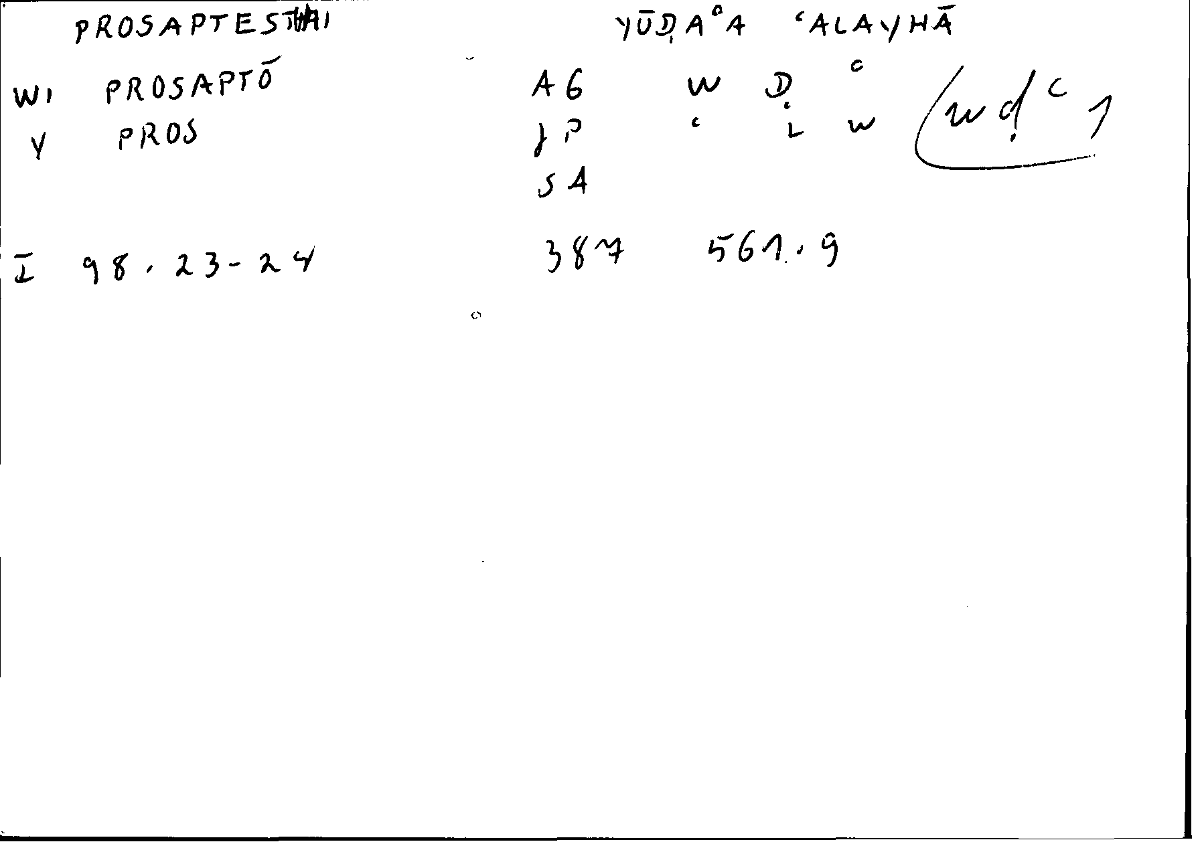 PROSAPTESTHAI YŪḌAʿA ʿALAYHĀ
WI PROSAPTŌ AG W Ḍ ʿ (wḍʿ 1
Y PROS JP ʿ L W
SA
I 98.23-24 387 561.9